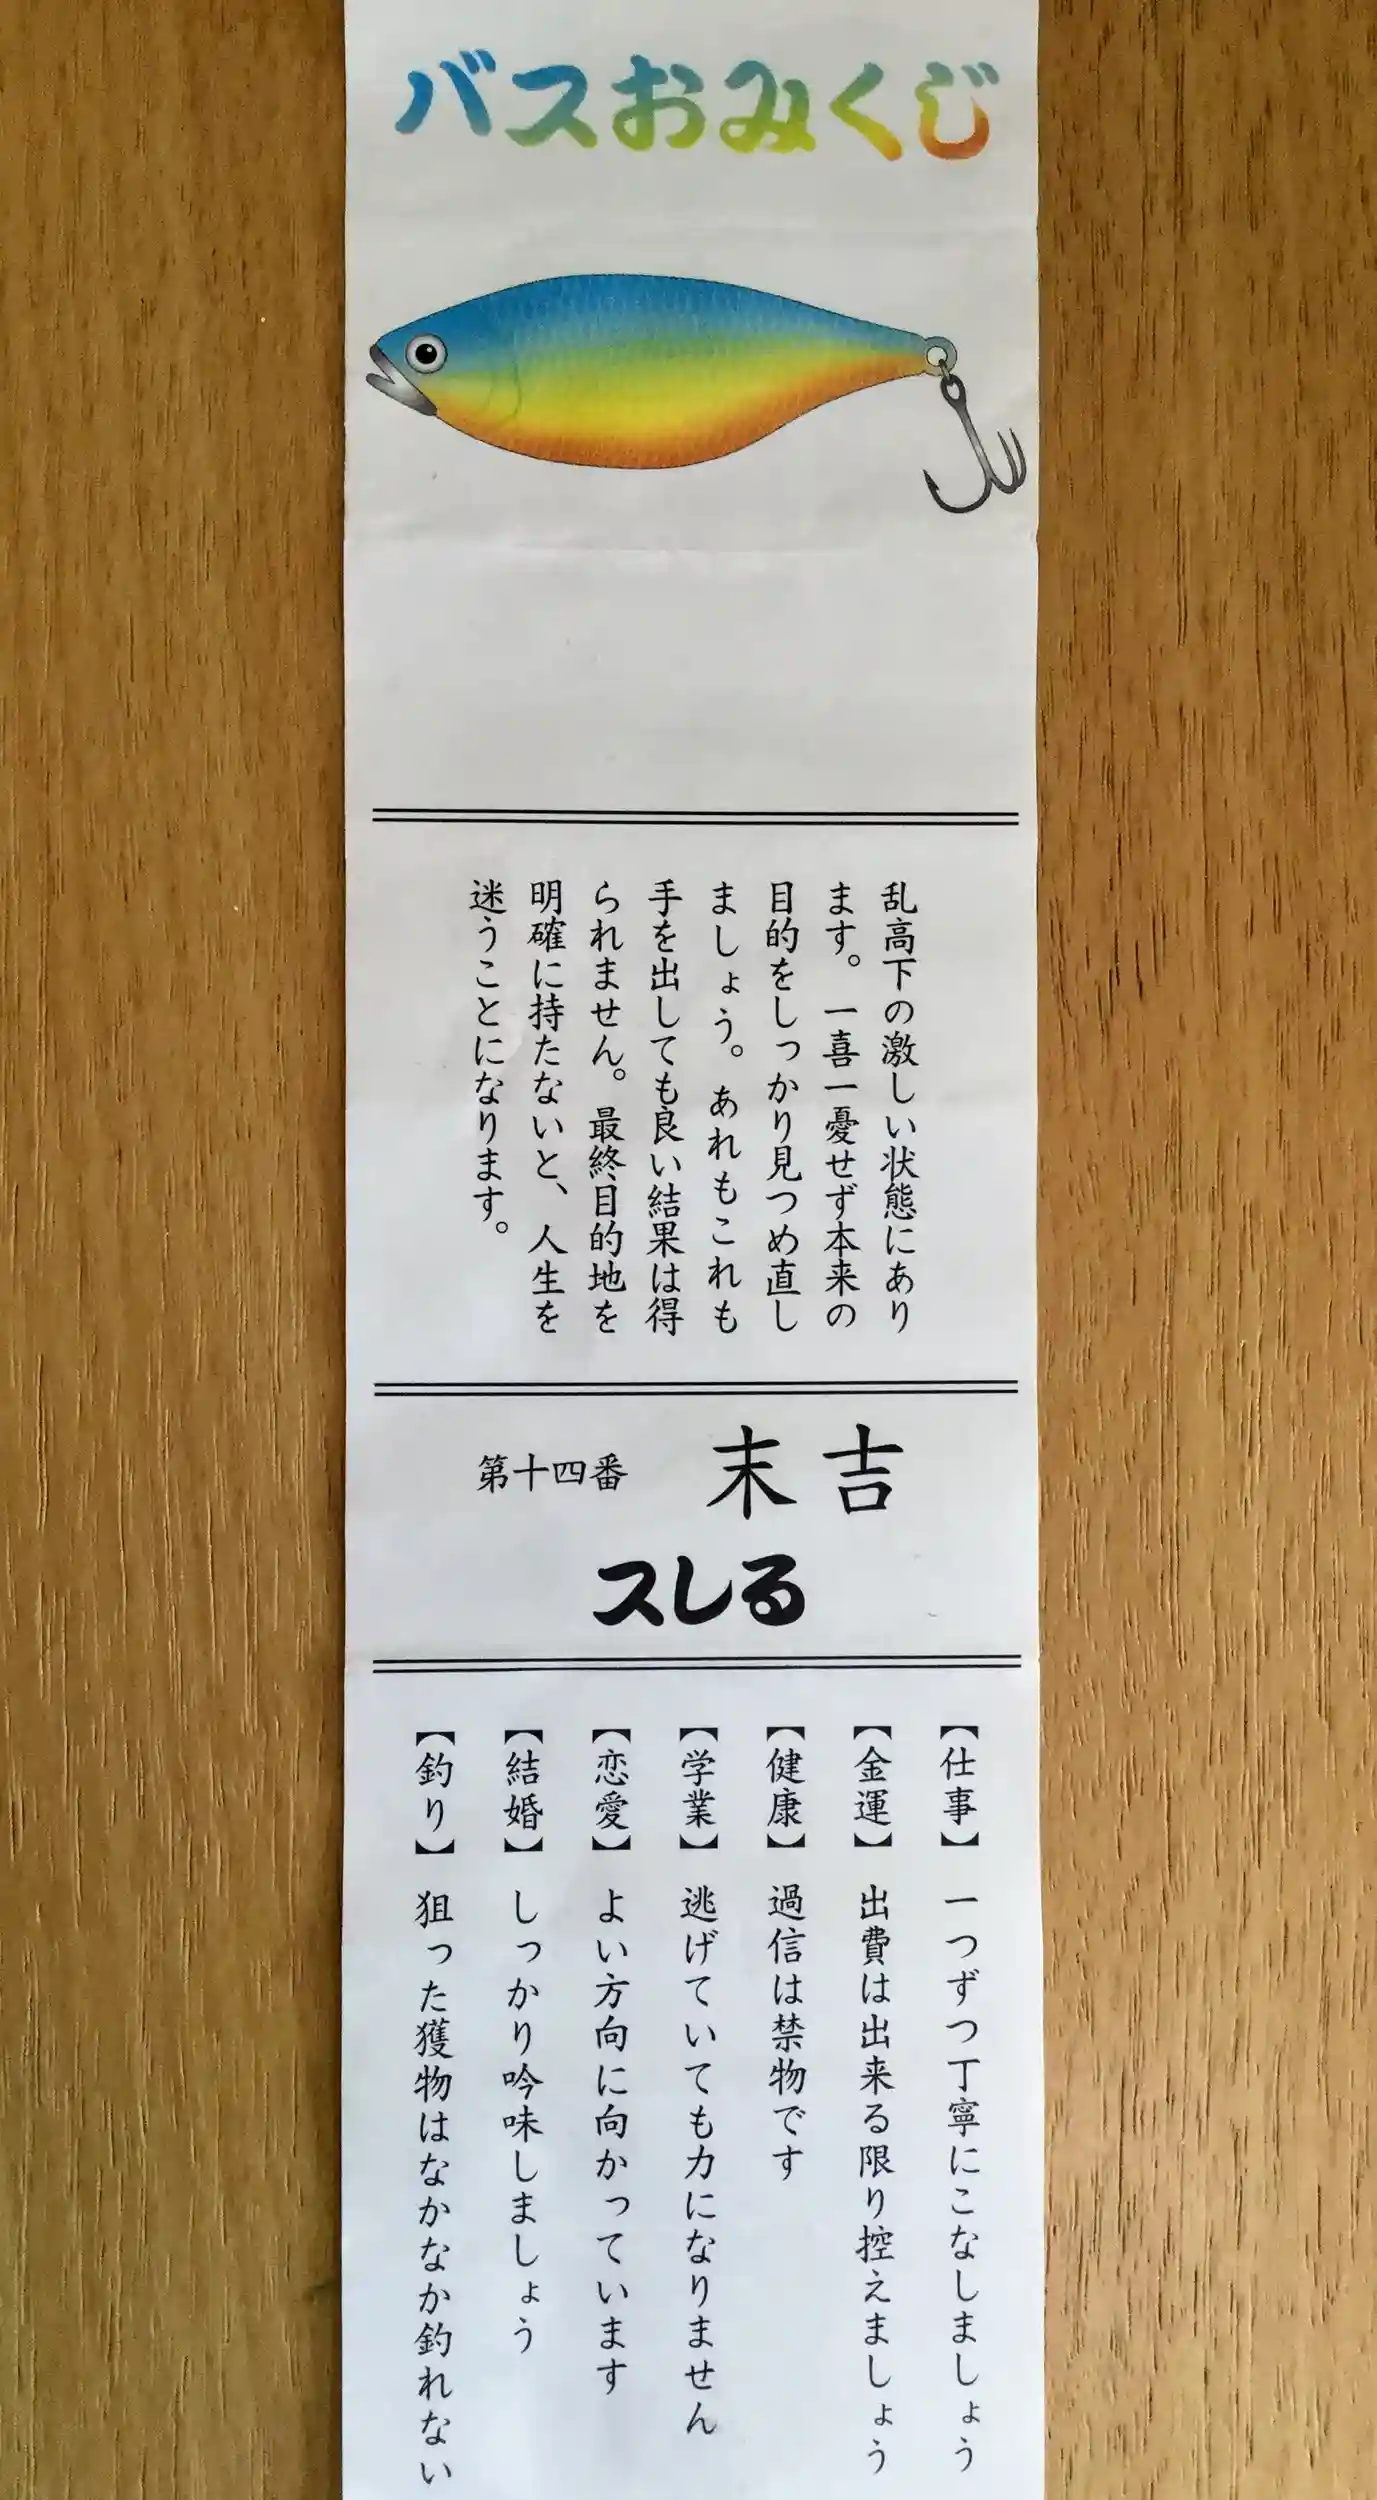 バスおみくじ
乱高下の激しい状態にあり
ます。一喜一憂せず本来の
目的をしっかり見つめ直し
ましょう。あれもこれも
手を出しても良い結果は得
られません。最終目的地を
明確に持たないと、人生を
迷うことになります。
第十四番 末吉
スしる
【仕事】 一つずつ丁寧にこなしましょう
【金運】 出費は出来る限り控えましょう
【健康】 過信は禁物です
【学業】 逃げていても力になりません
【恋愛】 よい方向に向かっています
【結婚】 しっかり吟味しましょう
【釣り】 狙った獲物はなかなか釣れない